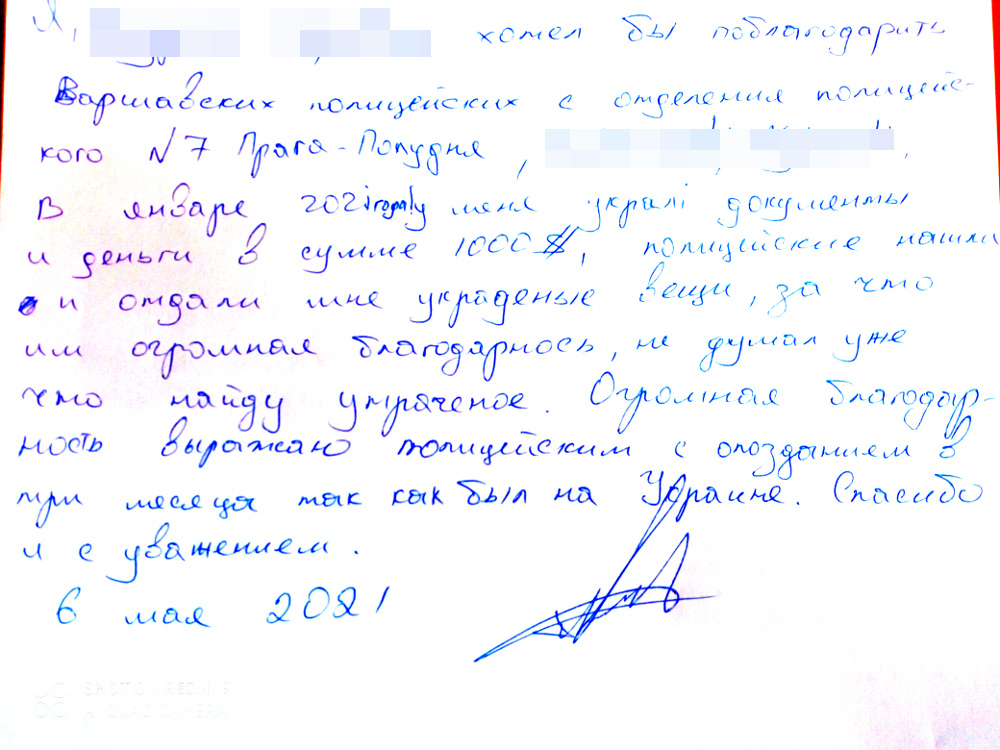 Я, хотел бы поблагодарить
Варшавских полицейских с отделения полицейс-
кого N7 Прага-Полудня,
В январе 2021 году меня украли документы
и деньги в сумме 1000$, полицейские нашли
и отдали мне украденые вещи, за что
им огромная благодарнось, не думал уже
что найду утраченое. Огромная благодар-
ность выражаю полицейским с опозданием в
три месяца так как был на Украине. Спасибо
и с уважением.
6 мая 2021
SHOT ON REDMI 8
AI DUAL CAMERA